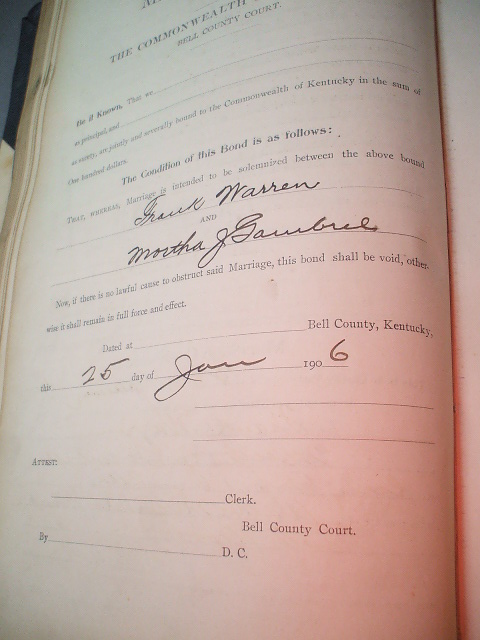 THE COMMONWEALTH
BELL COUNTY COURT.
Be it Known, That we
as principal, and
as surety, are jointly and severally bound to the Commonwealth of Kentucky in the sum of
One hundred dollars.
The Condition of this Bond is as follows:
THAT, WHEREAS, Marriage is intended to be solemnized between the above bound
Frank Warren
AND
Martha J Gambrel
Now, if there is no lawful cause to obstruct said Marriage, this bond shall be void, other-
wise it shall remain in full force and effect.
Dated at Bell County, Kentucky,
this 25 day of Jan 1906
ATTEST:
Clerk.
Bell County Court.
By D. C.